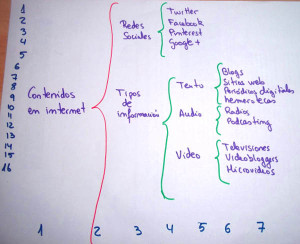 1
2
3
4
5
6
7
8
9
10
11
12
13
14
15
16
Contenidos
en internet
Redes
Sociales
Twitter
Facebook
Pinterest
Google +
Tipos
de
información
Texto
Blogs
Sitios web
Periódicos digitales
hemerotecas
Audio
Radios
Podcasting
Vídeo
Televisiones
Videobloggers
Microvídeos
1 2 3 4 5 6 7